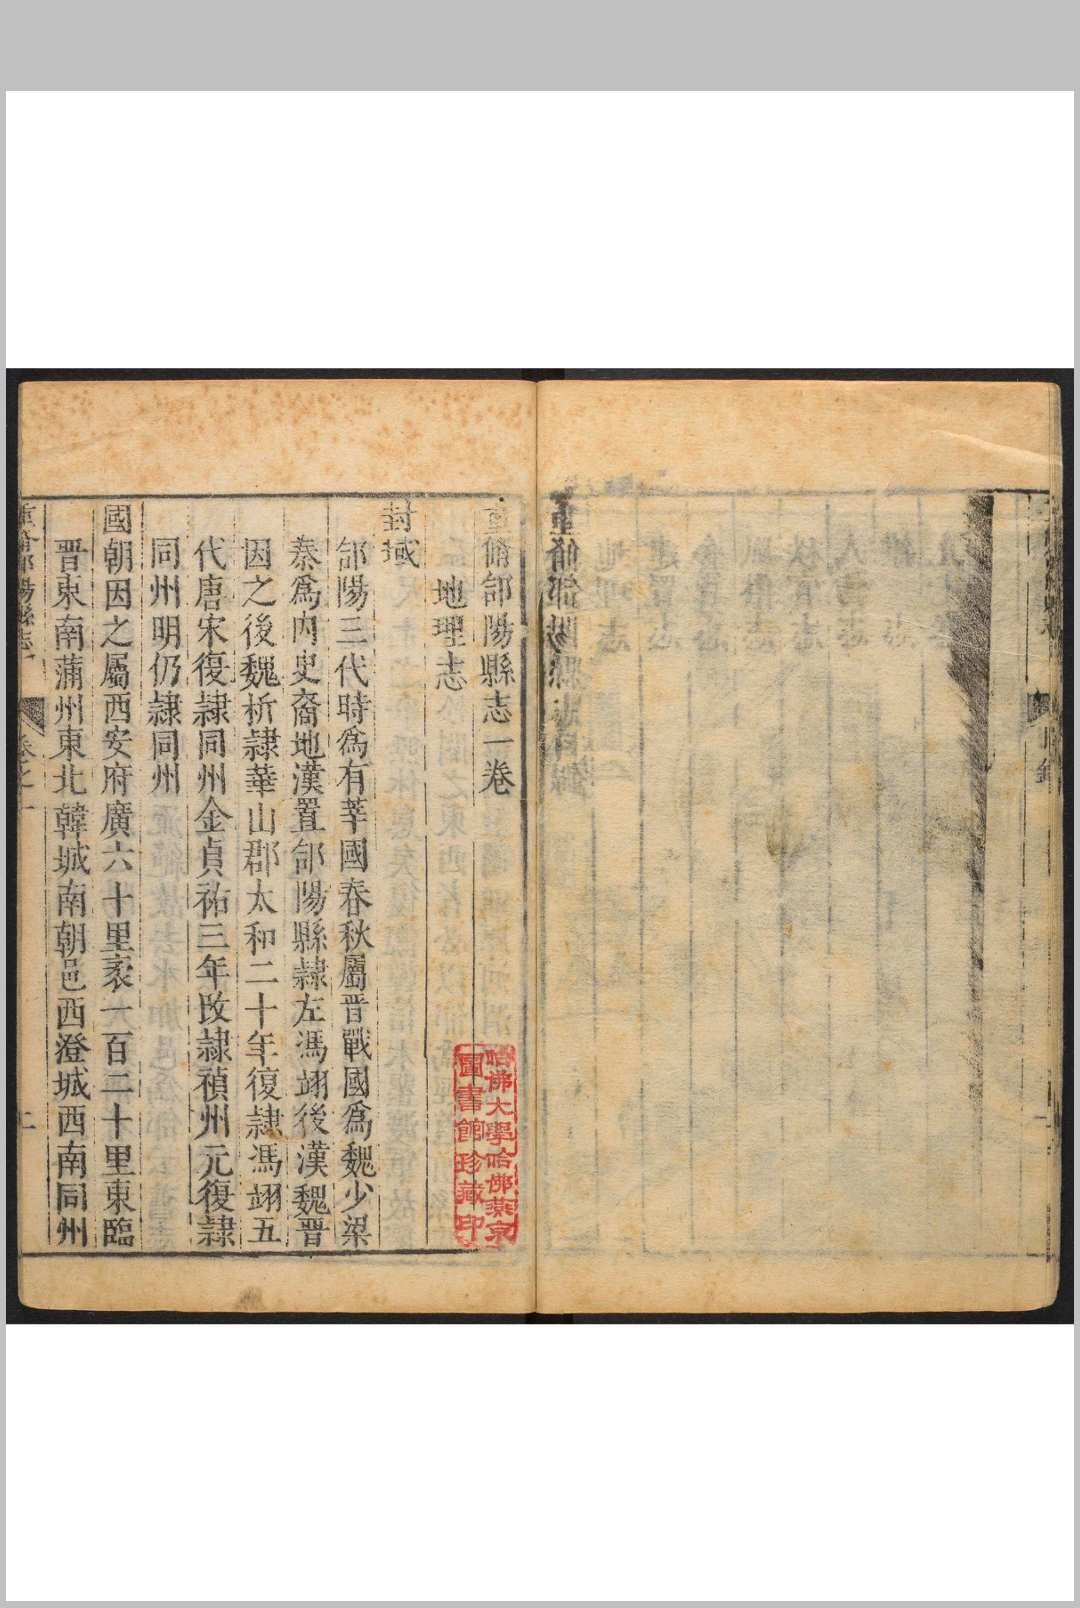 重脩郃陽縣志目錄
重脩郃陽縣志一卷
地理志
封域
郃陽三代時爲有莘國春秋屬晋戰國爲魏少梁
秦爲內史裔地漢置郃陽縣隷左馮翊後漢魏晋
因之後魏析隷華山郡太和二十年復隷馮翊五
代唐宋復隷同州金貞祐三年改隷禎州元復隷
同州明仍隷同州
國朝因之屬西安府廣六十里袤一百二十里東臨
晋東南蒲州東北韓城南朝邑西澄城西南同州
重脩郃陽縣志 卷之一 一
哈佛大學哈佛燕京
圖書館珍藏印